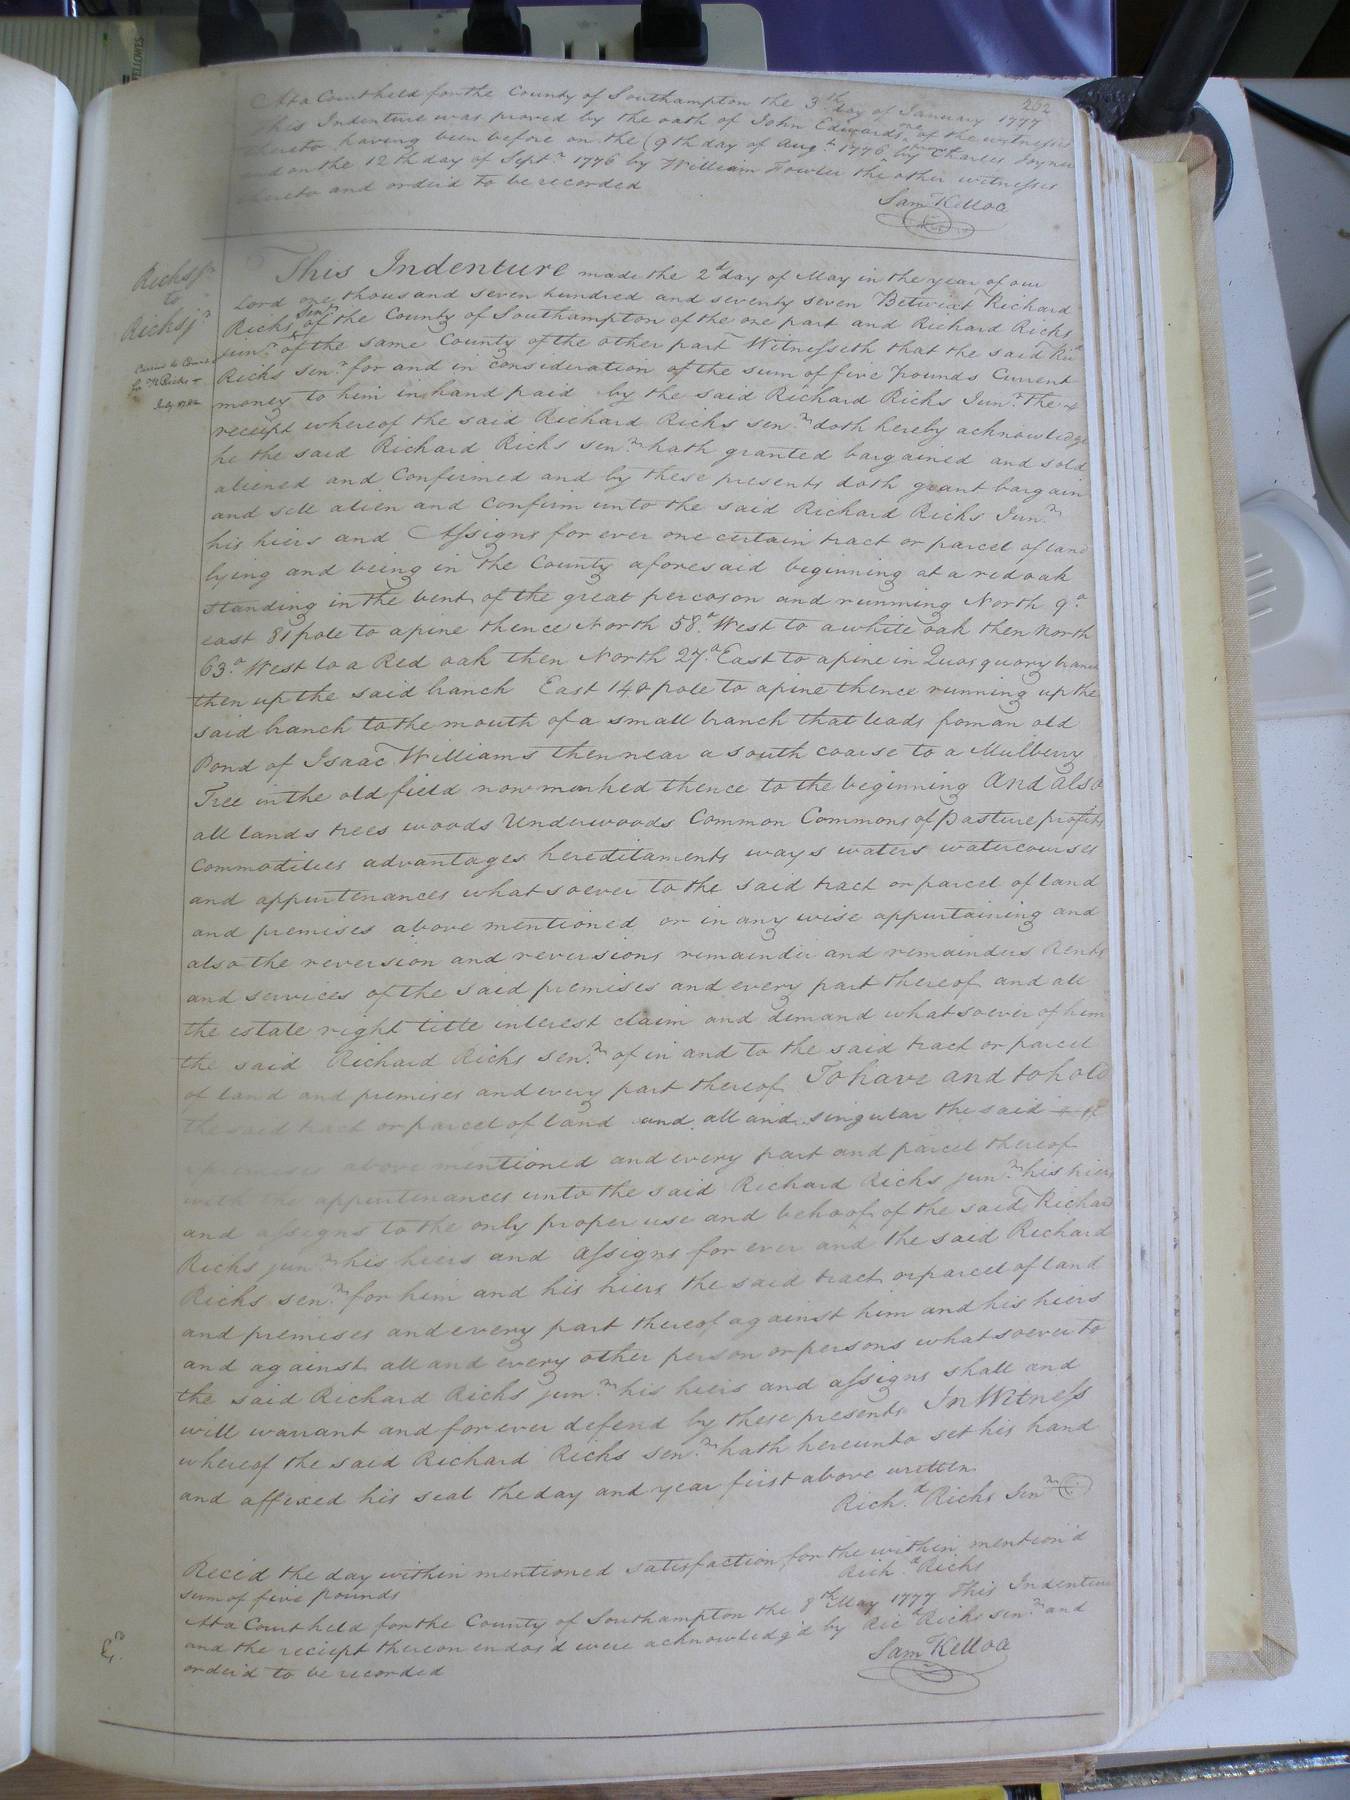 FELLOWES
252
At a Court held for the County of Southampton the 3th day of January 1777
This Indenture was proved by the oath of John Edwards one of the witnesses
thereto having been before on the 9th day of Augt 1776 by Charles Joyner
and on the 12th day of Septr 1776 by William Fowler the other witnesses
thereto and order'd to be recorded
Sam Kelloa
Ricks
to
Ricks jr
This Indenture made the 2d day of May in the year of our
Lord one thousand seven hundred and seventy seven Betwixt Richard
Ricks Senr of the County of Southampton of the one part and Richard Ricks
junr of the same County of the other part Witnesseth that the said Ricd
Ricks senr for and in consideration of the sum of five Pounds Current
money to him in hand paid by the said Richard Ricks Junr the
receipt whereof the said Richard Ricks senr doth hereby acknowledge
he the said Richard Ricks senr hath granted bargained and sold
aliened and Confirmed and by these presents doth grant bargain
and sell alien and Confirm unto the said Richard Ricks Junr
his hiers and Assigns for ever one certain tract or parcel of land
lying and being in the County aforesaid beginning at a red oak
standing in the bent of the great percoson and running North 9o
east 81 pole to a pine thence North 58o West to a white oak then North
63o West to a Red oak then North 27o East to a pine in Quosquory branch
then up the said branch East 148 pole to a pine thence running up the
said branch to the mouth of a small branch that leads from an old
Pond of Isaac Williams then near a south coarse to a Mulberry
Tree in the old field now marked thence to the beginning And also
all lands trees woods Underwoods Common Commons of Pasture profits
Commodities advantages hereditaments ways waters watercourses
and appurtenances whatsoever to the said tract or parcel of land
and premises above mentioned or in any wise appurtaining and
also the reversion and reversions remainder and remainders Rents
and services of the said premises and every part thereof and all
the estate right title interest claim and demand whatsoever of him
the said Richard Ricks senr of in and to the said tract or parcel
of land and premises and every part thereof To have and to hold
the said tract or parcel of land and all and singular the said
premises above mentioned and every part and parcel thereof
with the appurtenances unto the said Richard Ricks junr his hiers
and assigns to the only proper use and behoof of the said Richard
Ricks junr his hiers and Assigns for ever and the said Richard
Ricks senr for him and his hiers the said tract or parcel of land
and premises and every part thereof against him and his hiers
and against all and every other person or persons whatsoever to
the said Richard Ricks junr his hiers and assigns shall and
will warrant and for ever defend by these presents In Witness
whereof the said Richard Ricks senr hath hereunto set his hand
and affixed his seal the day and year first above written
Richd Ricks Senr
Rec'd the day within mentioned satisfaction for the within mention'd
sum of five pounds
Richd Ricks
At a Court held for the County of Southampton the 8th May 1777 This Indenture
and the reciept thereon endors'd were acknowledg'd by Ricd Ricks senr and
order'd to be recorded
Sam Kelloa